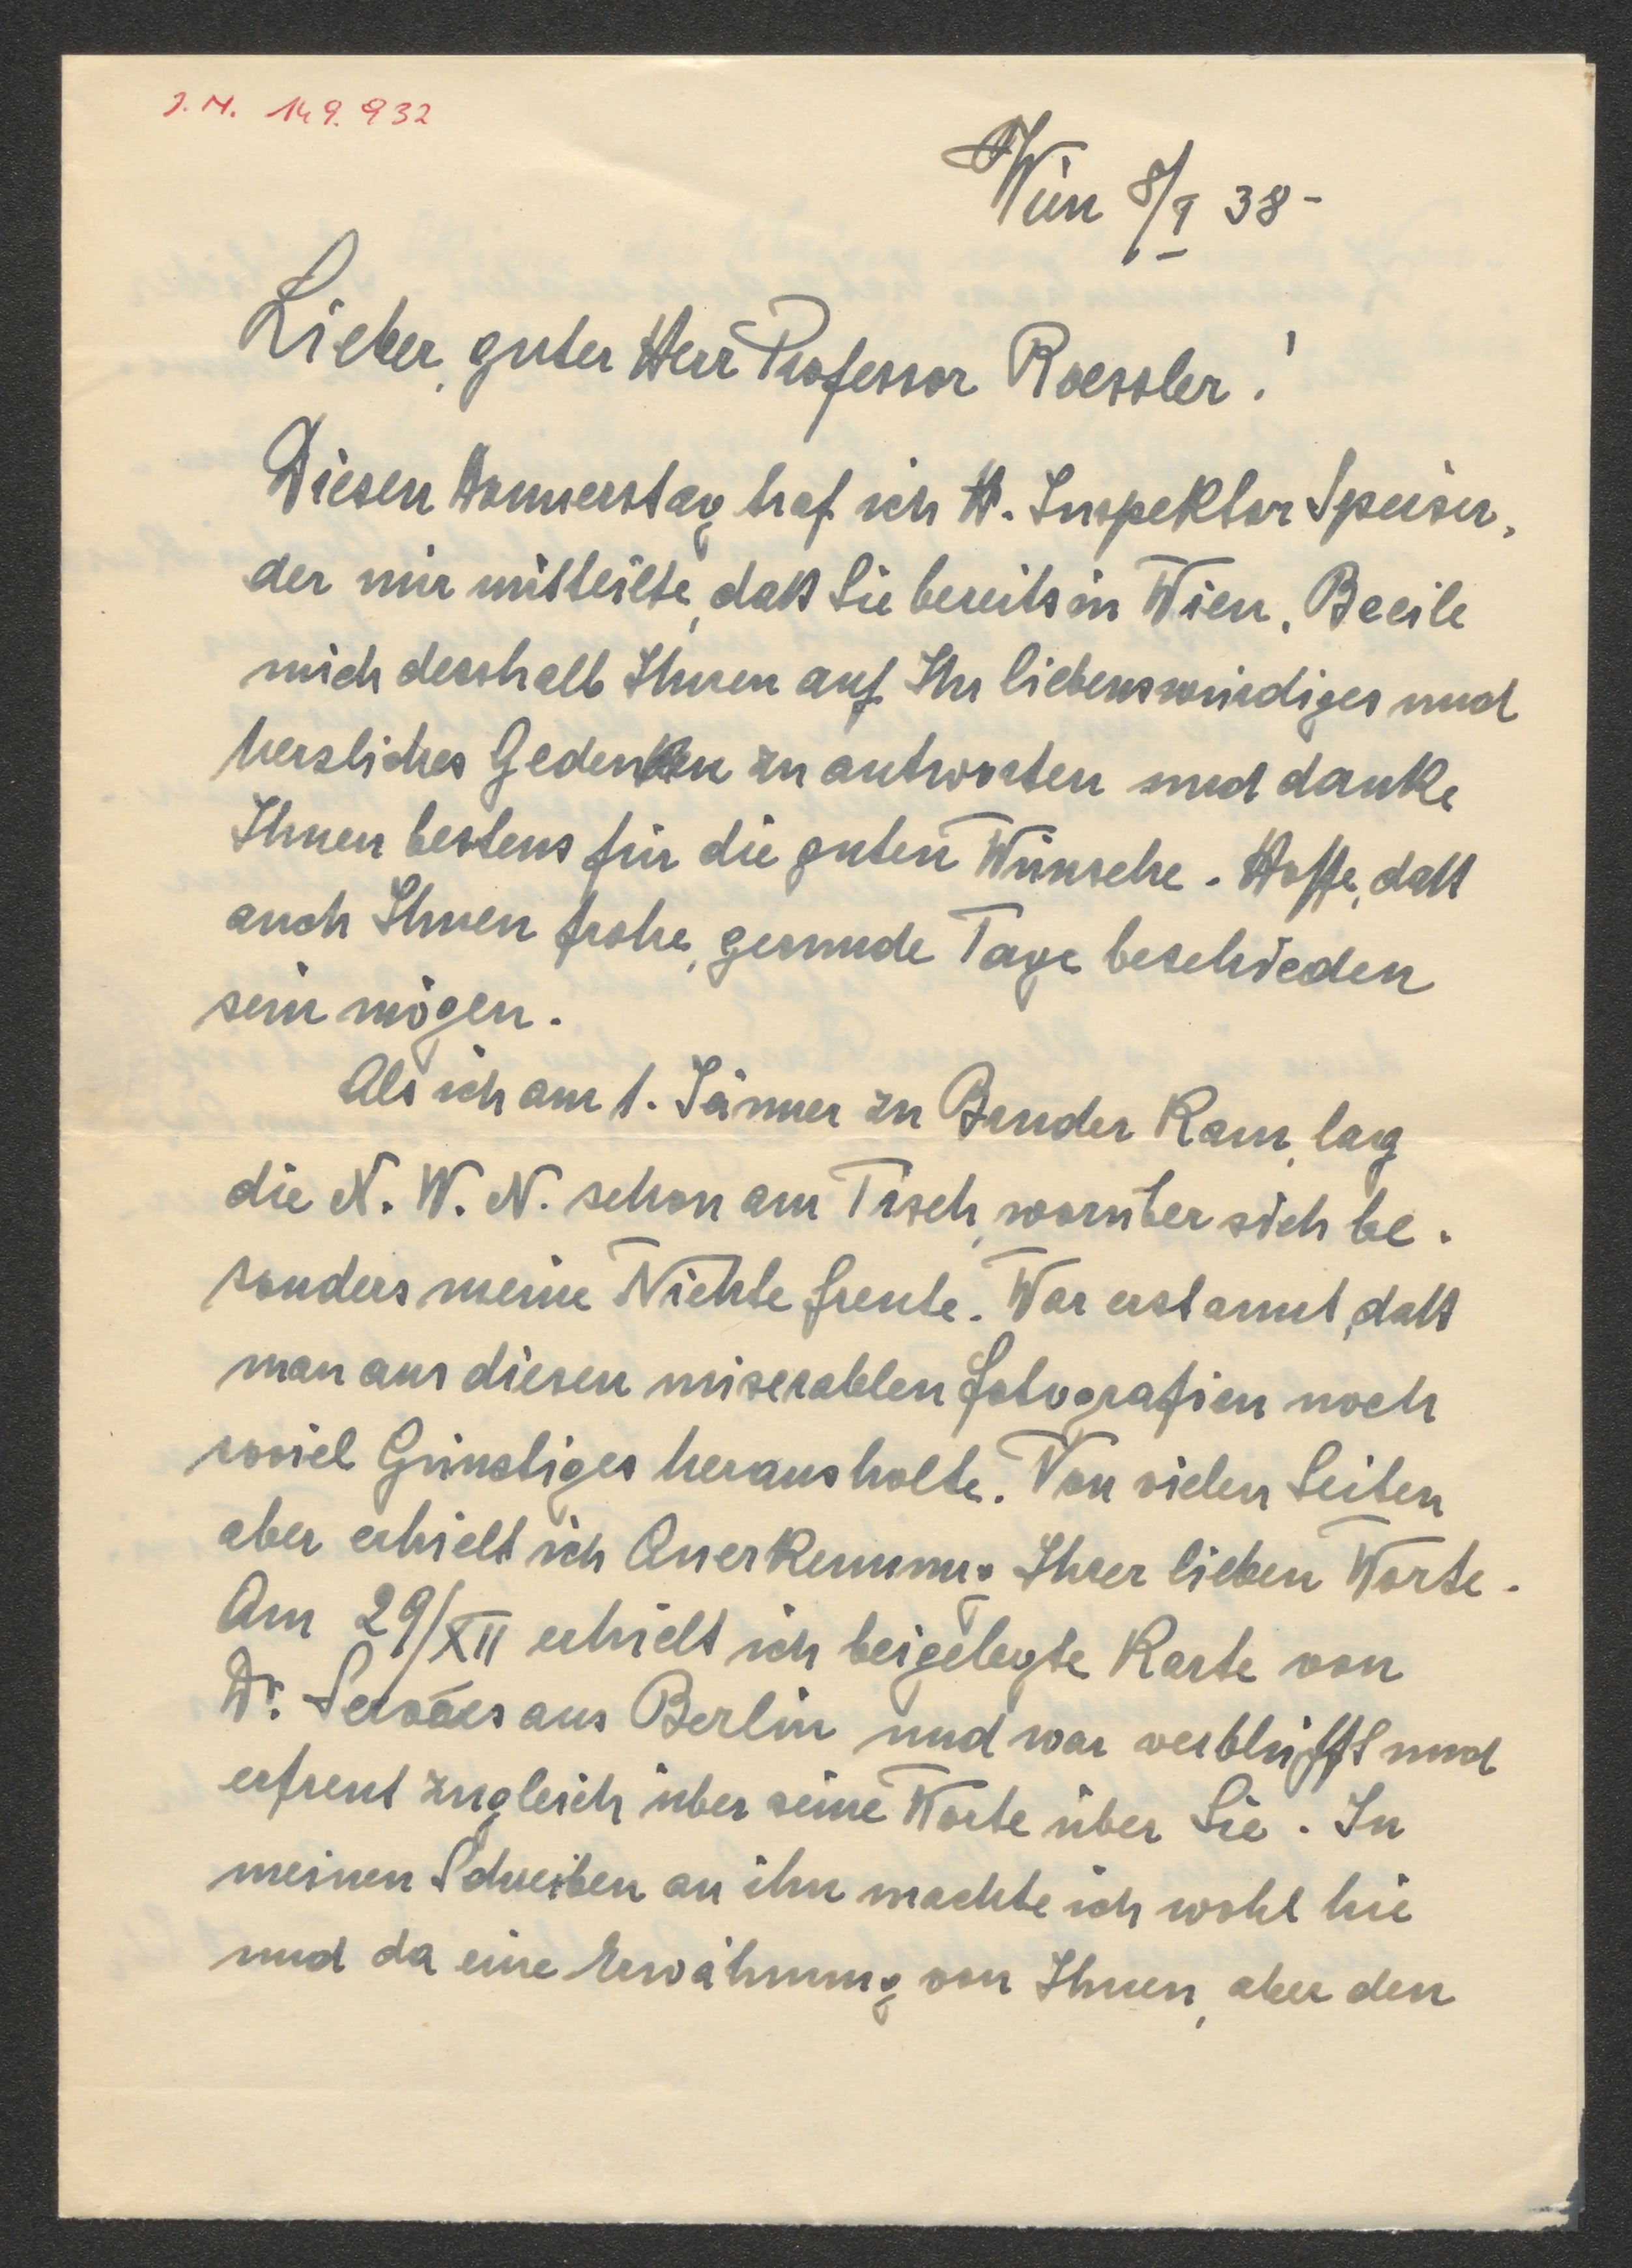 J. N. 149.932
Wien 8/I 38-
Lieber, guter Herr Professor Roessler!
Diesen Donnerstag traf ich H. Inspektor Speiser,
der mir mitteilte, daß Sie bereits in Wien. Beeile
mich desshalb Ihnen auf Ihr liebenswürdiges und
herzliches Gedenken zu antworten und danke
Ihnen bestens für die guten Wünsche. Hoffe, daß
auch Ihnen frohe, gesunde Tage beschieden
sein mögen.
Als ich am 1. Jänner zu Bruder kam, lag
die N. W. N. schon am Tisch, worüber sich be-
sonders meine Nichte freute. War erstaunt, daß
man aus diesen miserablen Fotografien noch
soviel Günstiges herausholte. Von vielen Seiten
aber erhielt ich Anerkennung Ihrer lieben Worte.
Am 29/XII erhielt ich beigelegte Karte von
Dr. Servaes aus Berlin und war verblüfft und
erfreut zugleich über seine Worte über Sie. In
meinen Schreiben an ihn machte ich wohl hie
und da eine Erwähnung von Ihnen, aber den